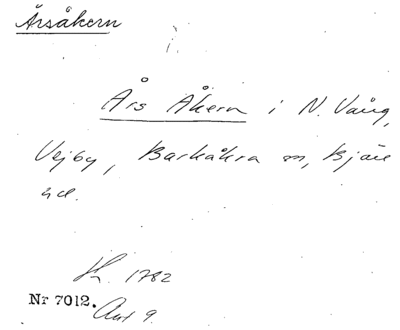 Årsåkern
Års Åkern i N. Vång,
Vejby, Barkåkra sn, Bjäre
hd.
Sk. 1782
Nr 7012.
Akt 9.